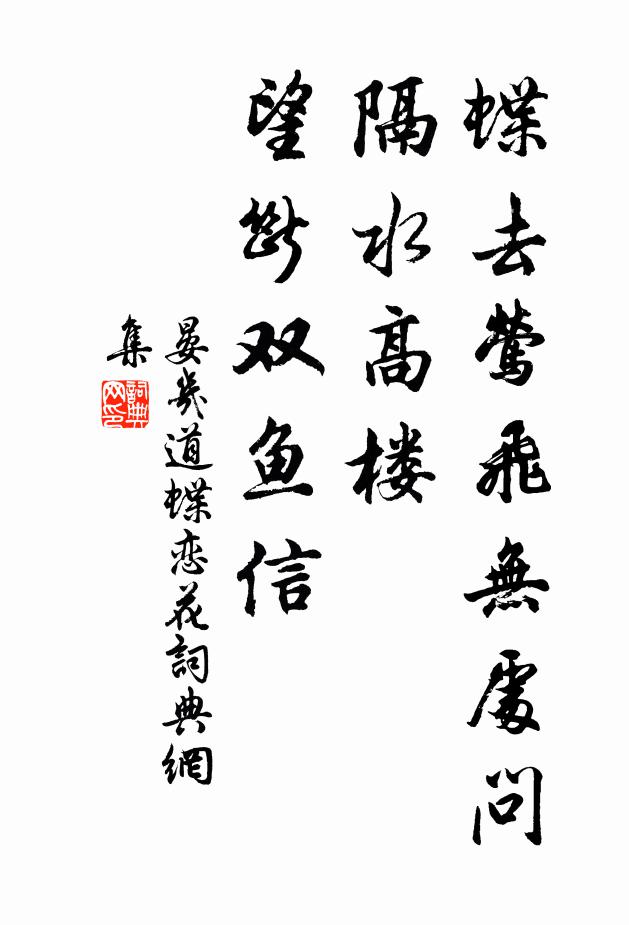 蝶去莺飛無處问
隔水高楼
望断双鱼信
晏幾道蝶恋花詞典網
集
詞典网印